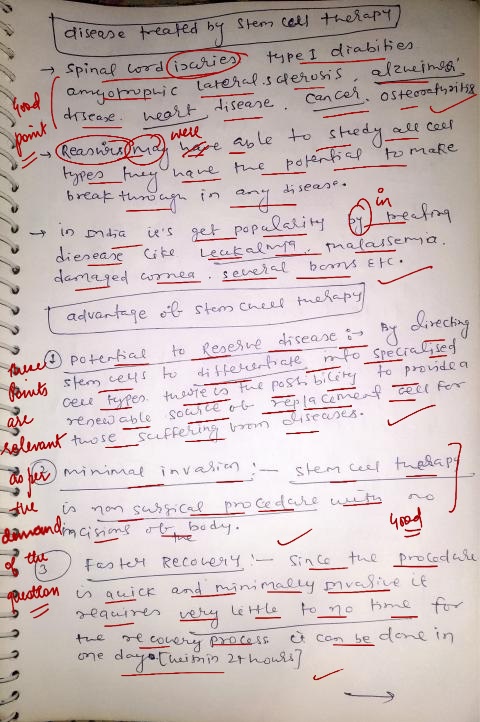 disease treated by stem cell therapy
→ spinal word isuries type I diabities
Good point
amyotrophic lateral sclerosis, alzheimers
disease. heart disease. cancer. osteoarthritis
→ Reashirs may have were able to study all cell
types they have the potential to make
break through in any disease.
→ in India it's get popularity by in treating
diesease like Leukalmya. malassemia.
damaged cornea. several borns Etc.
advantage ob stem cnell therapy
These points are relevant as per the demand of the question
① potential to Reserve disease :→ By directing
stem cells to differentiate info specialised
cell types there is the possibility to provide a
renewable source ob replacement cell for
those suffering brom diseases.
② minimal invarion :- stem cell therapy
is non surgical procedare with no
incisions ob the body.
Good
③ Faster Recovery :- Since the procedure
is quick and minimally invarive it
requires very lettle to no time for
the recovery process it can be done in
one day. [within 24 hours]